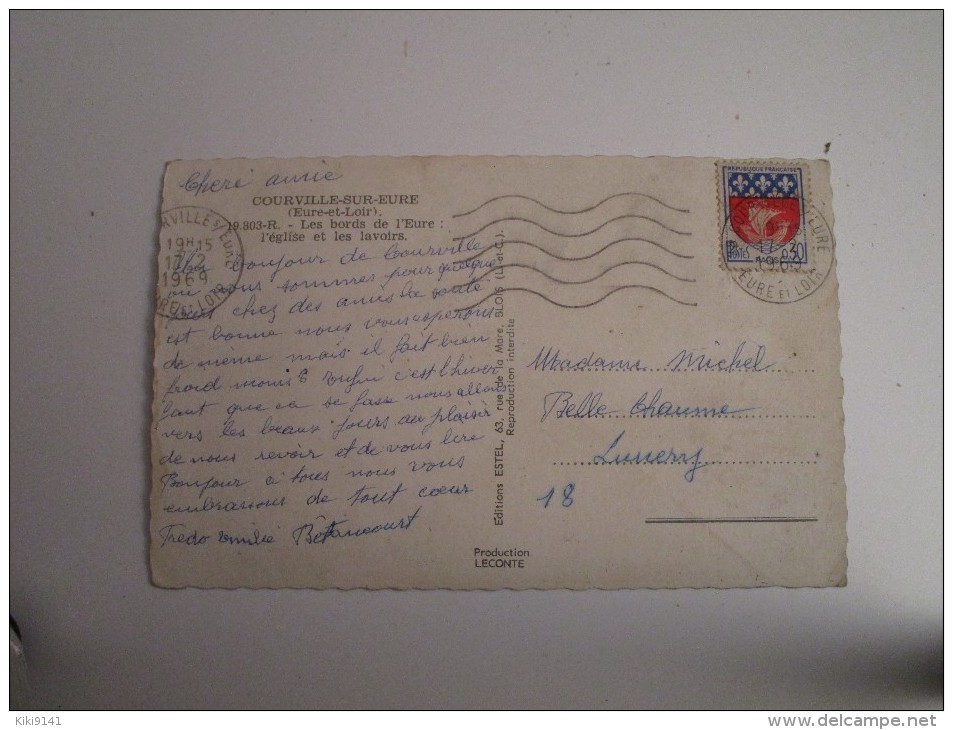 Cheré amie
COURVILLE-SUR-EURE
(Eure-et-Loir).
19.803-R. - Les bords de l'Eure :
l'église et les lavoirs.
19H15
17-2
1969
bonjour de Courville
ou nous sommes pour quelque
jours chez des amis la santé
est bonne nous vous esperons
de même mais il fait bien
froid enfin c'est l'hiver
faut que ca se fasse nous allons
vers les beaux jours au plaisir
de nous revoir et de vous lire
Bonjour à tous nous vous
embrasions de tout cœur
Fredo Emilie Bétancourt
Editions ESTEL, 63, rue de la Mare, BLOIS (L.-et-C.).
Reproduction interdite
Production
LECONTE
REPUBLIQUE FRANÇAISE
POSTES
0,30
EURE ET LOIR
Madame Michel
Belle Chaume
Lunery
18
Kiki9141
http://www.delcampe.net